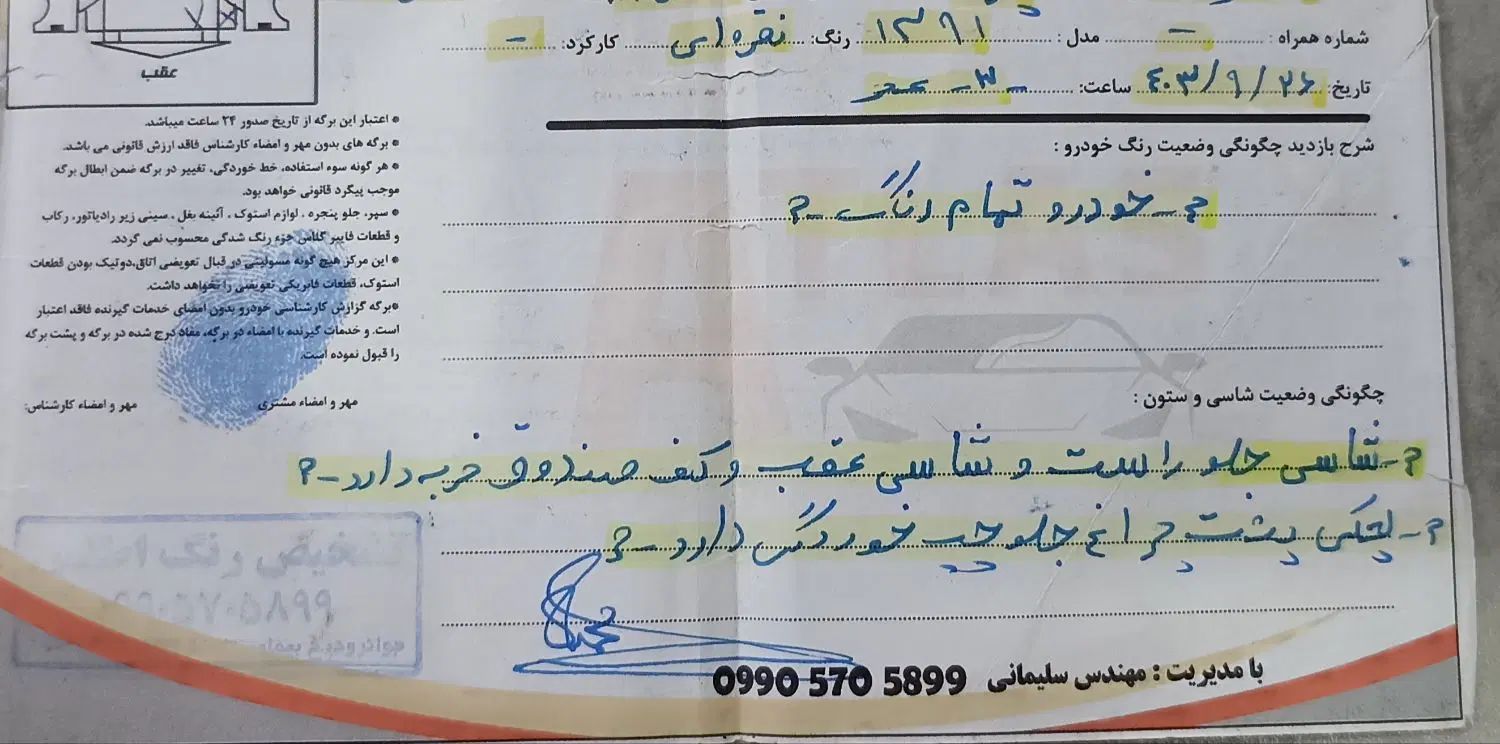 عقب
شماره همراه : - مدل : ۱۳۹۱ رنگ: نقره ای کارکرد: -
تاریخ: ۴۰۳/۹/۲۶ ساعت: ۳ عصر
* اعتبار این برگه از تاریخ صدور ۲۴ ساعت میباشد.
* برگه های بدون مهر و امضاء کارشناس فاقد ارزش قانونی می باشد.
* هر گونه سوء استفاده، خط خوردگی، تغییر در برگه ضمن ابطال برگه
موجب پیگرد قانونی خواهد بود.
* سپر، جلو پنجره ، لوازم استوک ، آئینه بغل ، سینی زیر رادیاتور، رکاب
و قطعات فایبر گلاس جزء رنگ شدگی محسوب نمی گردد.
* این مرکز هیچ گونه مسولیتی در قبال تعویضی اتاق،دوتیک بودن قطعات
استوک، قطعات فابریکی تعویضی را نخواهد داشت.
*برگه گزارش کارشناسی خودرو بدون امضای خدمات گیرنده فاقد اعتبار
است. و خدمات گیرنده با امضاء در برگه، مفاد درج شده در برگه و پشت برگه
را قبول نموده است.
مهر و امضاء مشتری مهر و امضاء کارشناس:
شرح بازدید چگونگی وضعیت رنگ خودرو :
خودرو تمام رنگ
چگونگی وضعیت شاسی و ستون :
شاسی جلو راست و شاسی عقب و کف صندوق ضربه دارد
لچکی پشت چراغ جلو چپ خوردگی دارد
تشخیص رنگ
با مدیریت : مهندس سلیمانی 0990 570 5899